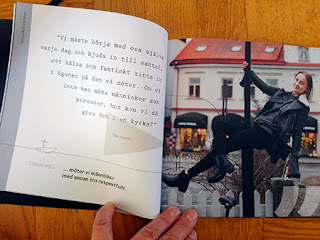 "Vi måste börja med oss själva
varje dag och bjuda in till samtal,
att hälsa och faktiskt titta in
i ögonen på den vi möter. Om vi
inte kan möta människor som
personer, hur kan vi då
göra det i en kyrka?"
... möter vi människor
med annan tro respektfullt.